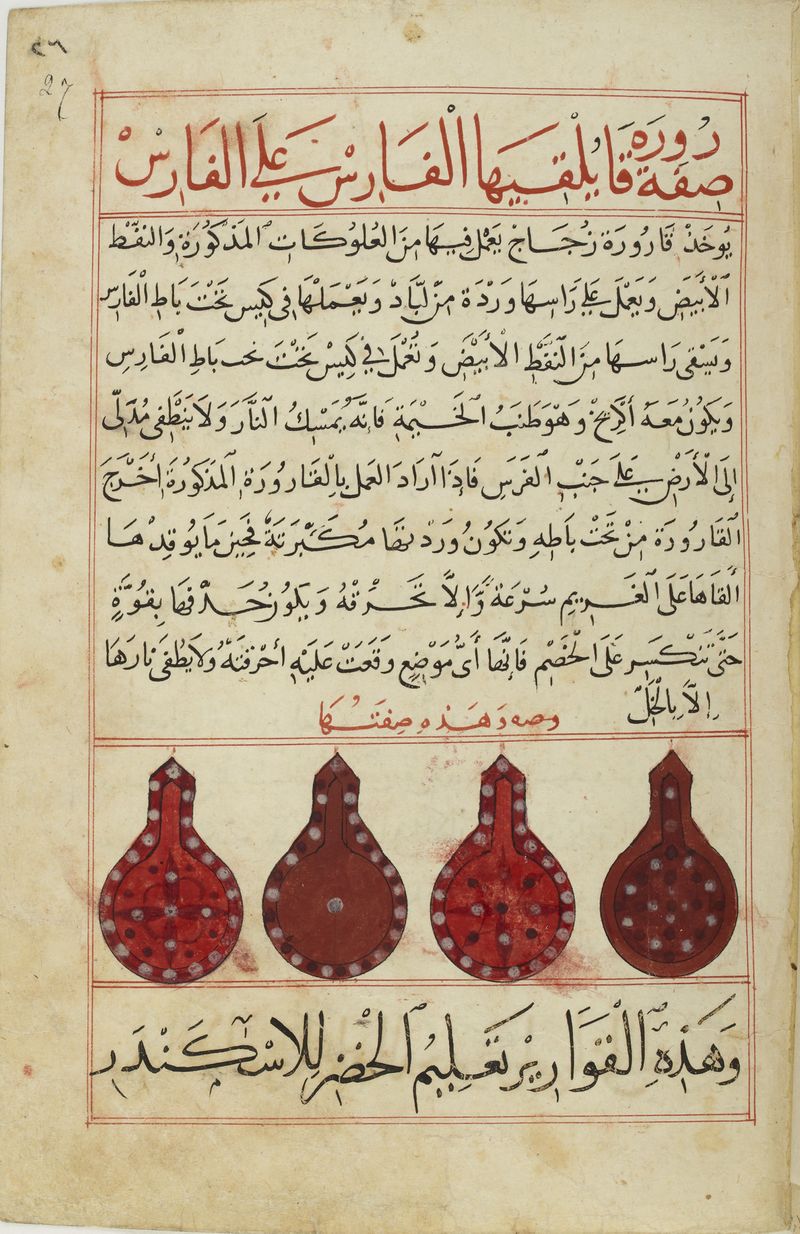 ٢٦
27
صفة قارورة يلقيها الفارس على الفارس
يُوخَذ قَارورَة زُجَاج يَعْمَل فيهَا مِنَ العُلوكَات المَذكورَة وَالنفط
الأبيَض وَيعْمَل عَلى رَاسِهَا وَرْدَة مِن لبَّاد وَيَعْمَلهَا في كيس تَحْتَ بَاط الفَارس
وَيَسْقى رَاسهَا مِنَ النَفْط الأبيَض وَتُعْمَل في كِيس تَحْتَ تحت بَاطِ الفَارِس
وَيَكُونُ مَعَهُ أكريخ وَهْوَ طَنَبُ الخَيْمَة فَإنَّهُ يَمْسِكُ النَّارَ وَلَا يَنْطَفِى مُدَلّى
إلَى الأرْض عَلَى جَنْبِ الفَرَس فَإذَا آرَادَ العَمَل بِالْقَارُورَة المَذكورَة أخْرَجَ
القَارُورَة مِنْ تَحْت بَاطِهِ وَتَكونُ وَردتهَا مُكَبْرَتَةً فحِينَ مَا يُوقِدْهَا
ألقَاهَا عَلَى الغَرِيم سُرْعَةً وَإلَّا تَحْرقْهُ وَيَكون حَدْفهَا بِقُوَّةٍ
حَتَّى تَنْكَسِر عَلَى الخَصْم فَإنَّهَا أىّ مَوْضِعٍ وَقَعَتْ عَلَيْهِ أحْرَقتهُ وَلَا يُطْفى نَارهَا
إلَّا بِالخَلّ وَهَذِهِ صِفَتهَا
وَهَذِهِ القَوَارِير تَعْلِيمُ الخْضر لِلاسْكَنْدَر